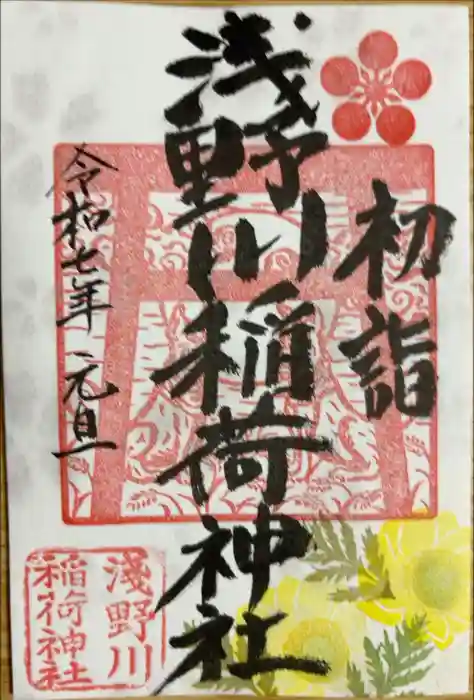 初詣
浅野川稲荷神社
令和七年 元旦
浅野川
稲荷神社